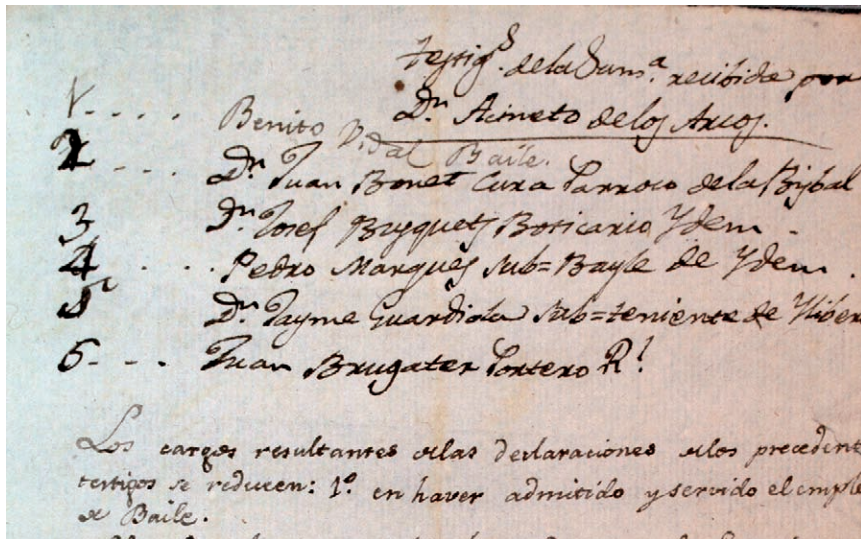 Testigs. de la Sum.ª recibida por
Dn. Acineto de los Arcos.
1 - - - . Benito Vidal Baile.
2 - - - . Dn. Juan Bonet Cura Parroco de la Bisbal
3 Dn. Josef Brugues Boticario Ydem .
4 . . . . Pedro Marques sub=Bayle de Ydem .
5 Dn. Jayme Guardiola sub=teniente de Yliber
6 - - . Juan Brugater Portero Rl.
Los cargos resultantes de las declaraciones de los precedent
testigos se reducen: 1º. en haver admitido y servido el emple
de Baile.